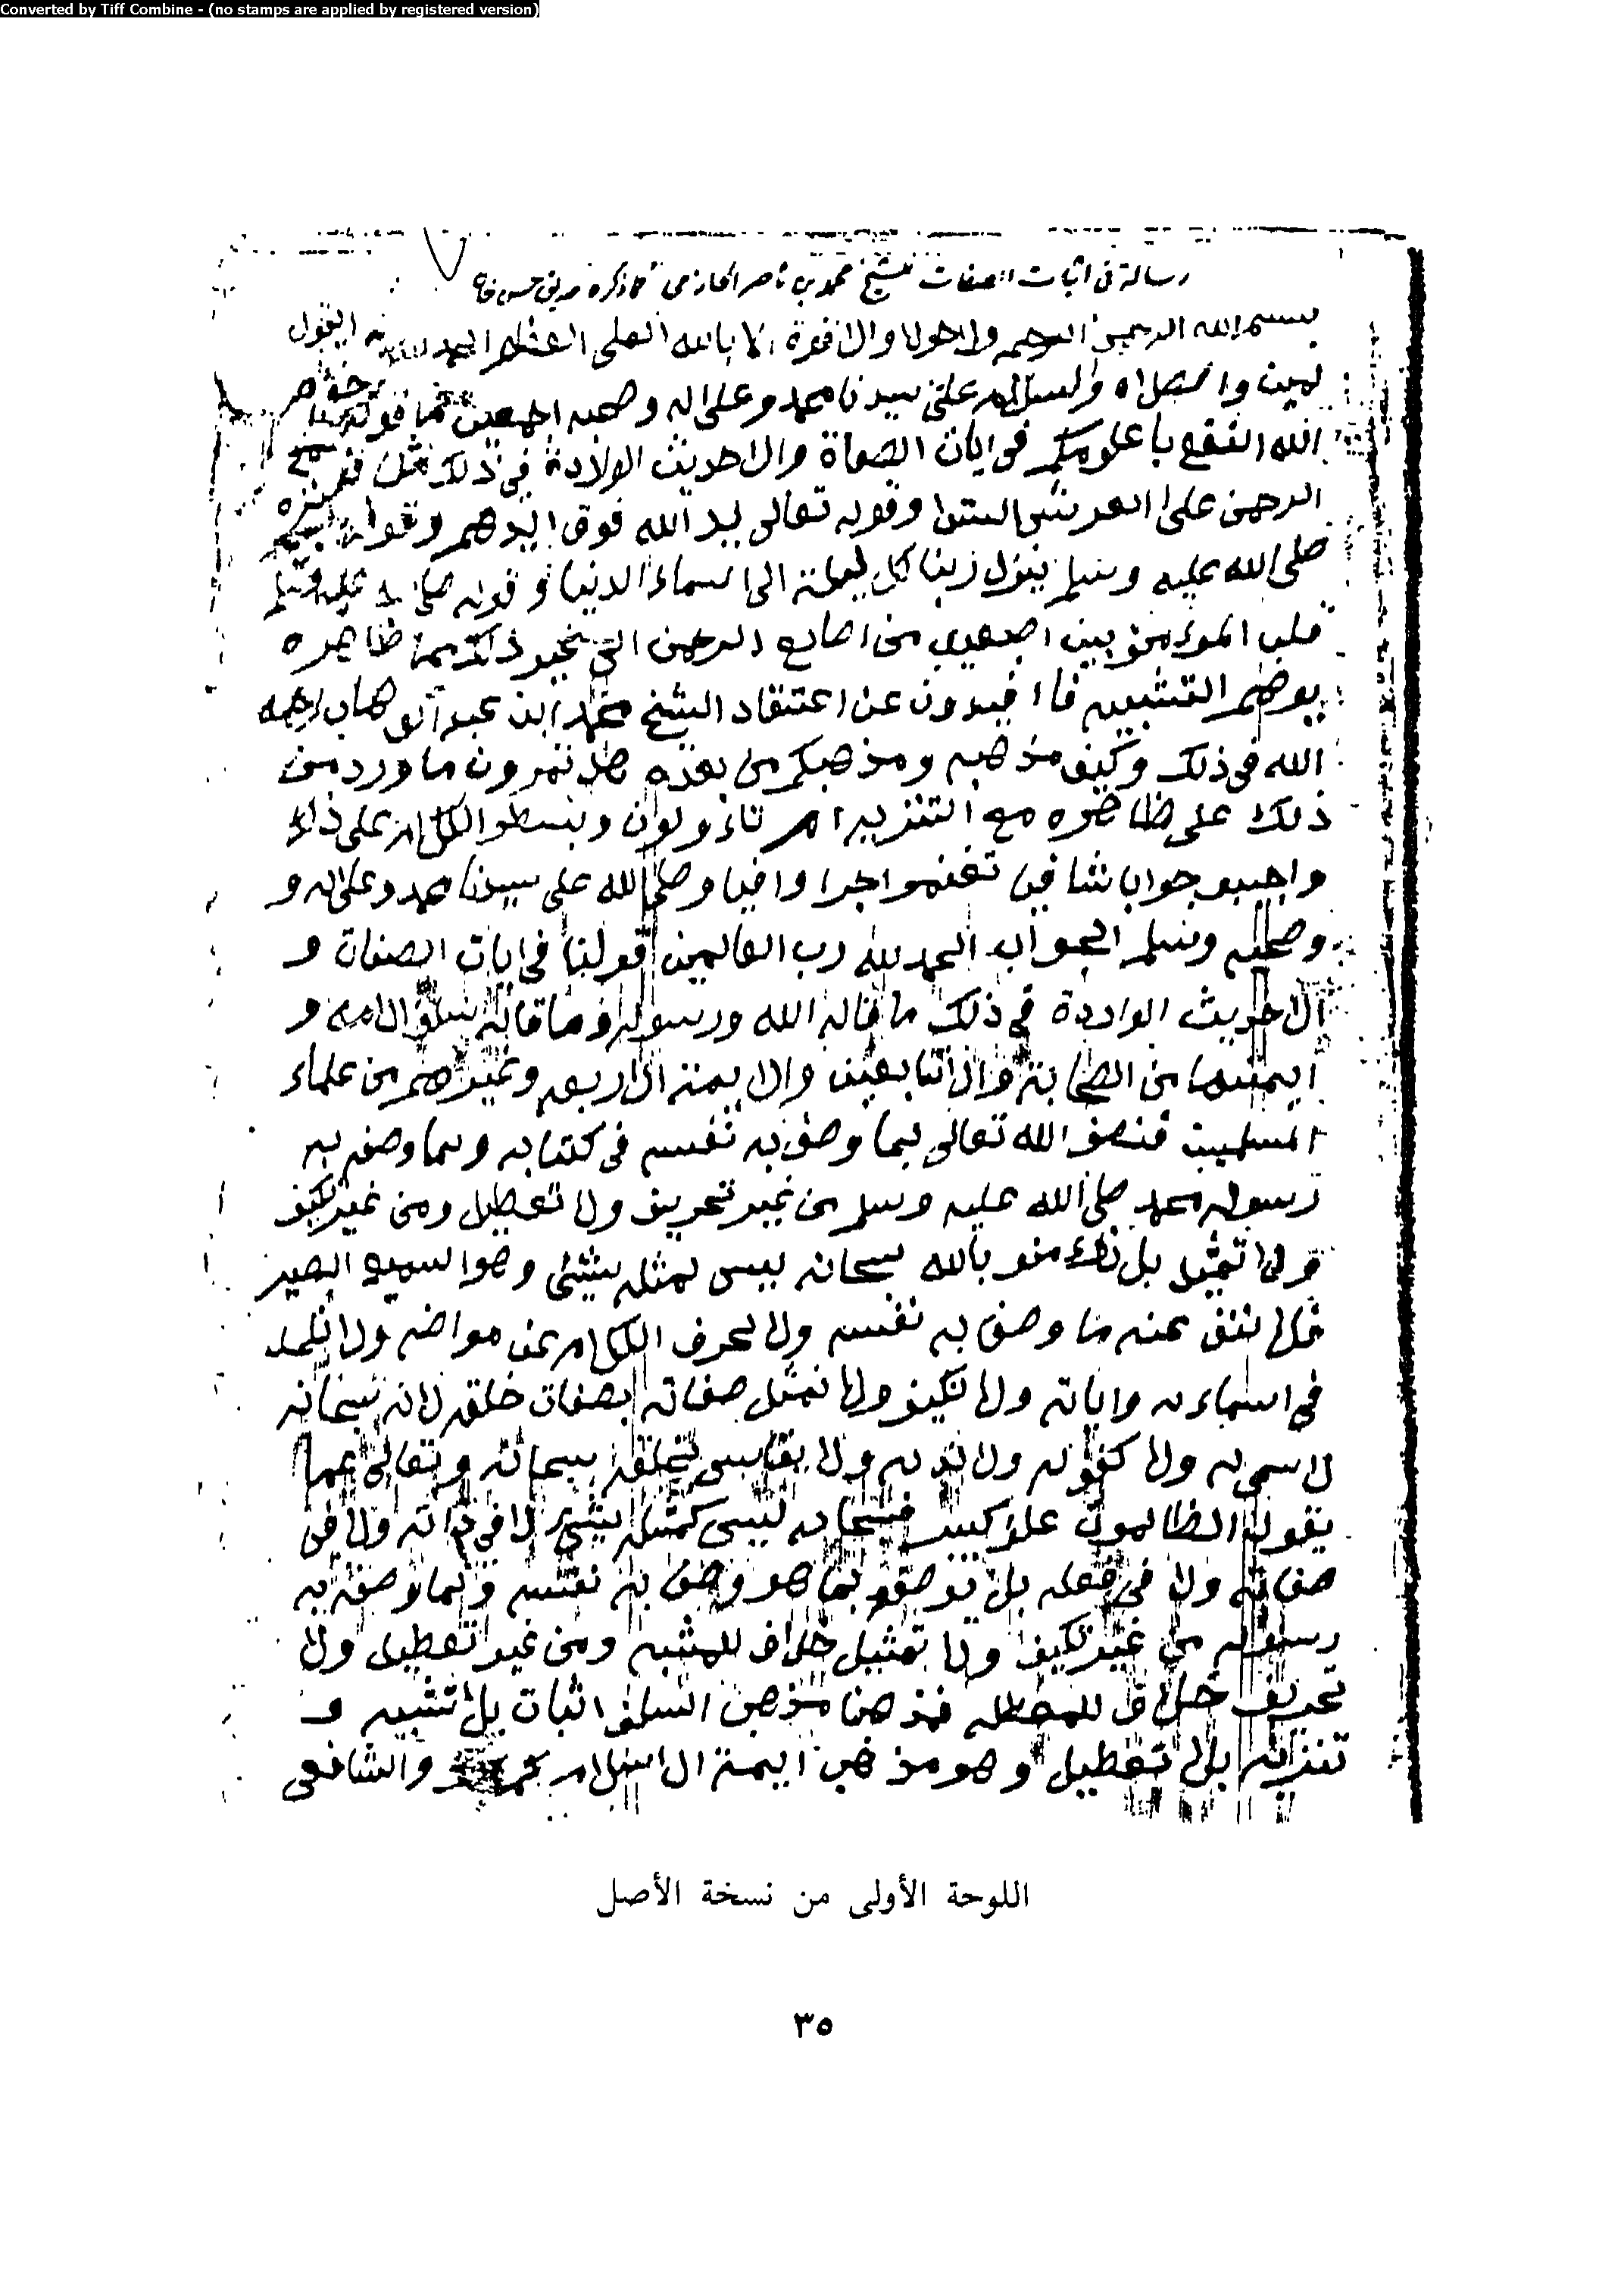 Converted by Tiff Combine - (no stamps are applied by registered version)
رسالة في اثبات الصفات للشيخ محمد بن ناصر الحازمي كما ذكره صديق حسن خان
بسم الله الرحمن الرحيم ولا حولا والا قوة الا بالله العلي العظيم الحمد لله
لمين والصلاه والسلام على سيدنا محمد وعلى اله وصحبه اجمعين ما قولكم
الله النفع باعلومكم في ايات الصفاة والاحديث الواردة في ذلك مثل
الرحمن على العرش استوا وقوله تعالى يد الله فوق ايدهم وقوله
صلى الله عليه وسلم ينزل ربنا كل ليلة الى السماء الدنيا وقوله صلى الله عليه وسلم
قلب المؤمن بين اصبعين من اصابع الرحمن الى غير ذلك مما ظاهره
يوهم التشبيه فاافيدون عن اعتقاد الشيخ محمد ابن عبد الوهاب رحمه
الله في ذلك وكيف مذهبه ومذهبكم من بعده هل تمرون ما ورد من
ذلك على ظاهره مع التنزيه ام تاءولون وبسطو الكلام على ذلك
واجيبو جوابا شافين تغنمو اجرا وافيا وصلى الله على سيدنا محمد وعلى اله و
وصحبه وسلم الجواب الحمد لله رب العالمين قولنا في ايات الصفات و
الاحديث الواردة في ذلك ما قاله الله ورسوله وما قاله سلف الامه و
ايمتها من الصحابة والتابعين والايمة الاربعه وغيرهم من علماء
المسلمين فنصف الله تعالى بما وصف به نفسه في كتابه وبما وصفه به
رسوله محمد صلى الله عليه وسلم من غير تحريف ولا تعطيل ومن غير تكييف
ولا تمثيل بل نؤمنو بالله سبحانه ليس كمثله شئ وهوا السميع البصير
فلا ننف عنه ما وصف به نفسه ولا نحرف الكلام عن مواضعه ولا نلحد
في اسماءه واياته ولا نكيف ولا نمثل صفاته بصفات خلقه لانه سبحانه
لا سمي له ولا كفو له ولا ند له ولا يقاس بخلقه سبحانه وتعالى عما
يقول الظالمون علو كبير فسبحانه ليس كمثله شئ لا في ذاته ولا في
صفاته ولا في فعله بل يوصف بما هو وصف به نفسه وبما وصفه به
رسوله من غير تكييف ولا تمثيل خلاف للمشبه ومن غير تعطيل ولا
تحريف خلاف للمعطله فمذهبنا مذهب السلف اثبات بلا تشبيه و
تنزيه بلا تعطيل وهو مذهب ايمة الاسلام والشافعي
اللوحة الأولى من نسخة الأصل
٣٥